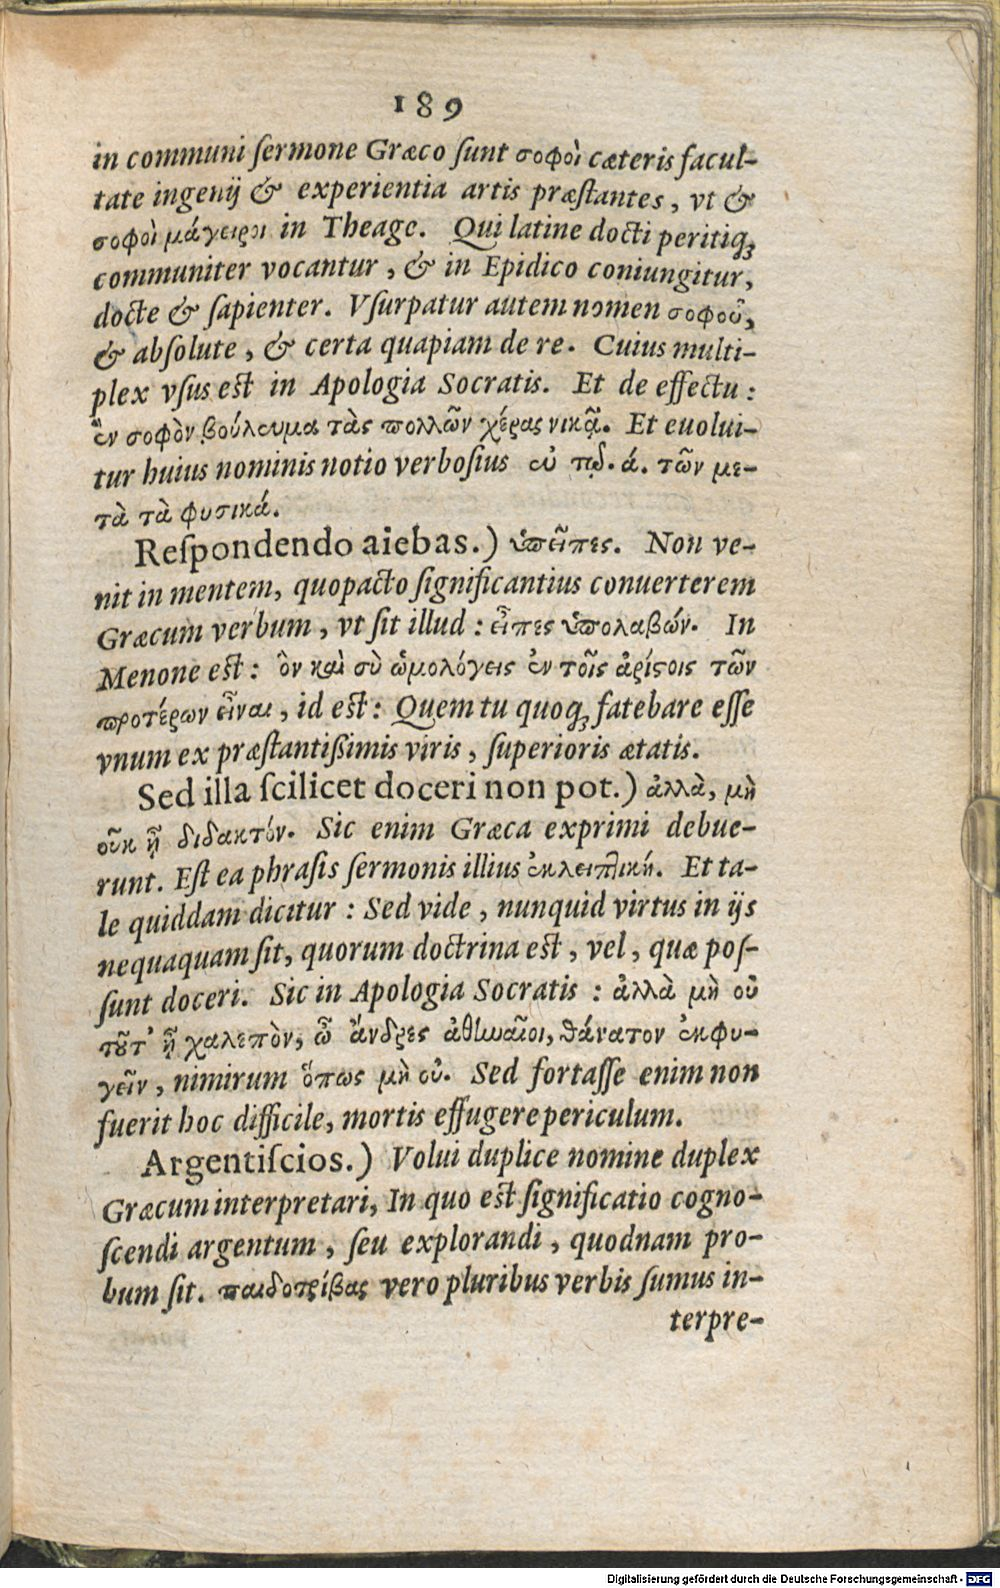 189
in communi ſermone Græco ſunt σοφοὶ cæteris facul-
tate ingenij & experientia artis præſtantes, vt &
σοφοὶ μάγειροι in Theage. Qui latine docti peritiq́;
communiter vocantur, & in Epidico coniungitur,
docte & ſapienter. Vſurpatur autem nomen σοφοῦ,
& abſolute, & certa quapiam de re. Cuius multi-
plex vſus eſt in Apologia Socratis. Et de effectu:
ἓν σοφὸν βούλευμα τὰς πολλῶν χέρας νικᾷ. Et euolui-
tur huius nominis notio verboſius ἐν ά. τῶν με-
τὰ τὰ φυσικά.
Reſpondendo aiebas.) ὑπεῖπες. Non ve-
nit in mentem, quopacto ſignificantius conuerterem
Græcum verbum, vt ſit illud: εἶπες ὑπολαβών. In
Menone eſt: ὃν καὶ σὺ ὡμολόγεις ἐν τοῖς ἀρίςοις τῶν
προτέρων εἶναι, id eſt: Quem tu quoq́; fatebare eſſe
vnum ex præſtantißimis viris, ſuperioris ætatis.
Sed illa ſcilicet doceri non pot.) ἀλλὰ, μὴ
οὐκ ᾖ διδακτόν. Sic enim Græca exprimi debue-
runt. Eſt ea phraſis ſermonis illius ἐκλειπτική. Et ta-
le quiddam dicitur: Sed vide, nunquid virtus in ijs
nequaquam ſit, quorum doctrina eſt, vel, quæ poſ-
ſunt doceri. Sic in Apologia Socratis: ἀλλὰ μὴ οὐ
τοῦτ᾽ ᾖ χαλεπὸν, ὦ ἄνδρες ἀθηναῖοι, θάνατον ἐκφυ-
γεῖν, nimirum ὅπως μὴ οὐ. Sed fortaſſe enim non
fuerit hoc difficile, mortis effugere periculum.
Argentiſcios.) Volui duplice nomine duplex
Græcum interpretari, In quo eſt ſignificatio cogno-
ſcendi argentum, ſeu explorandi, quodnam pro-
bum ſit. παιδοτρίβας vero pluribus verbis ſumus in-
terpre-
Digitalisierung gefördert durch die Deutsche Forschungsgemeinschaft - DFG